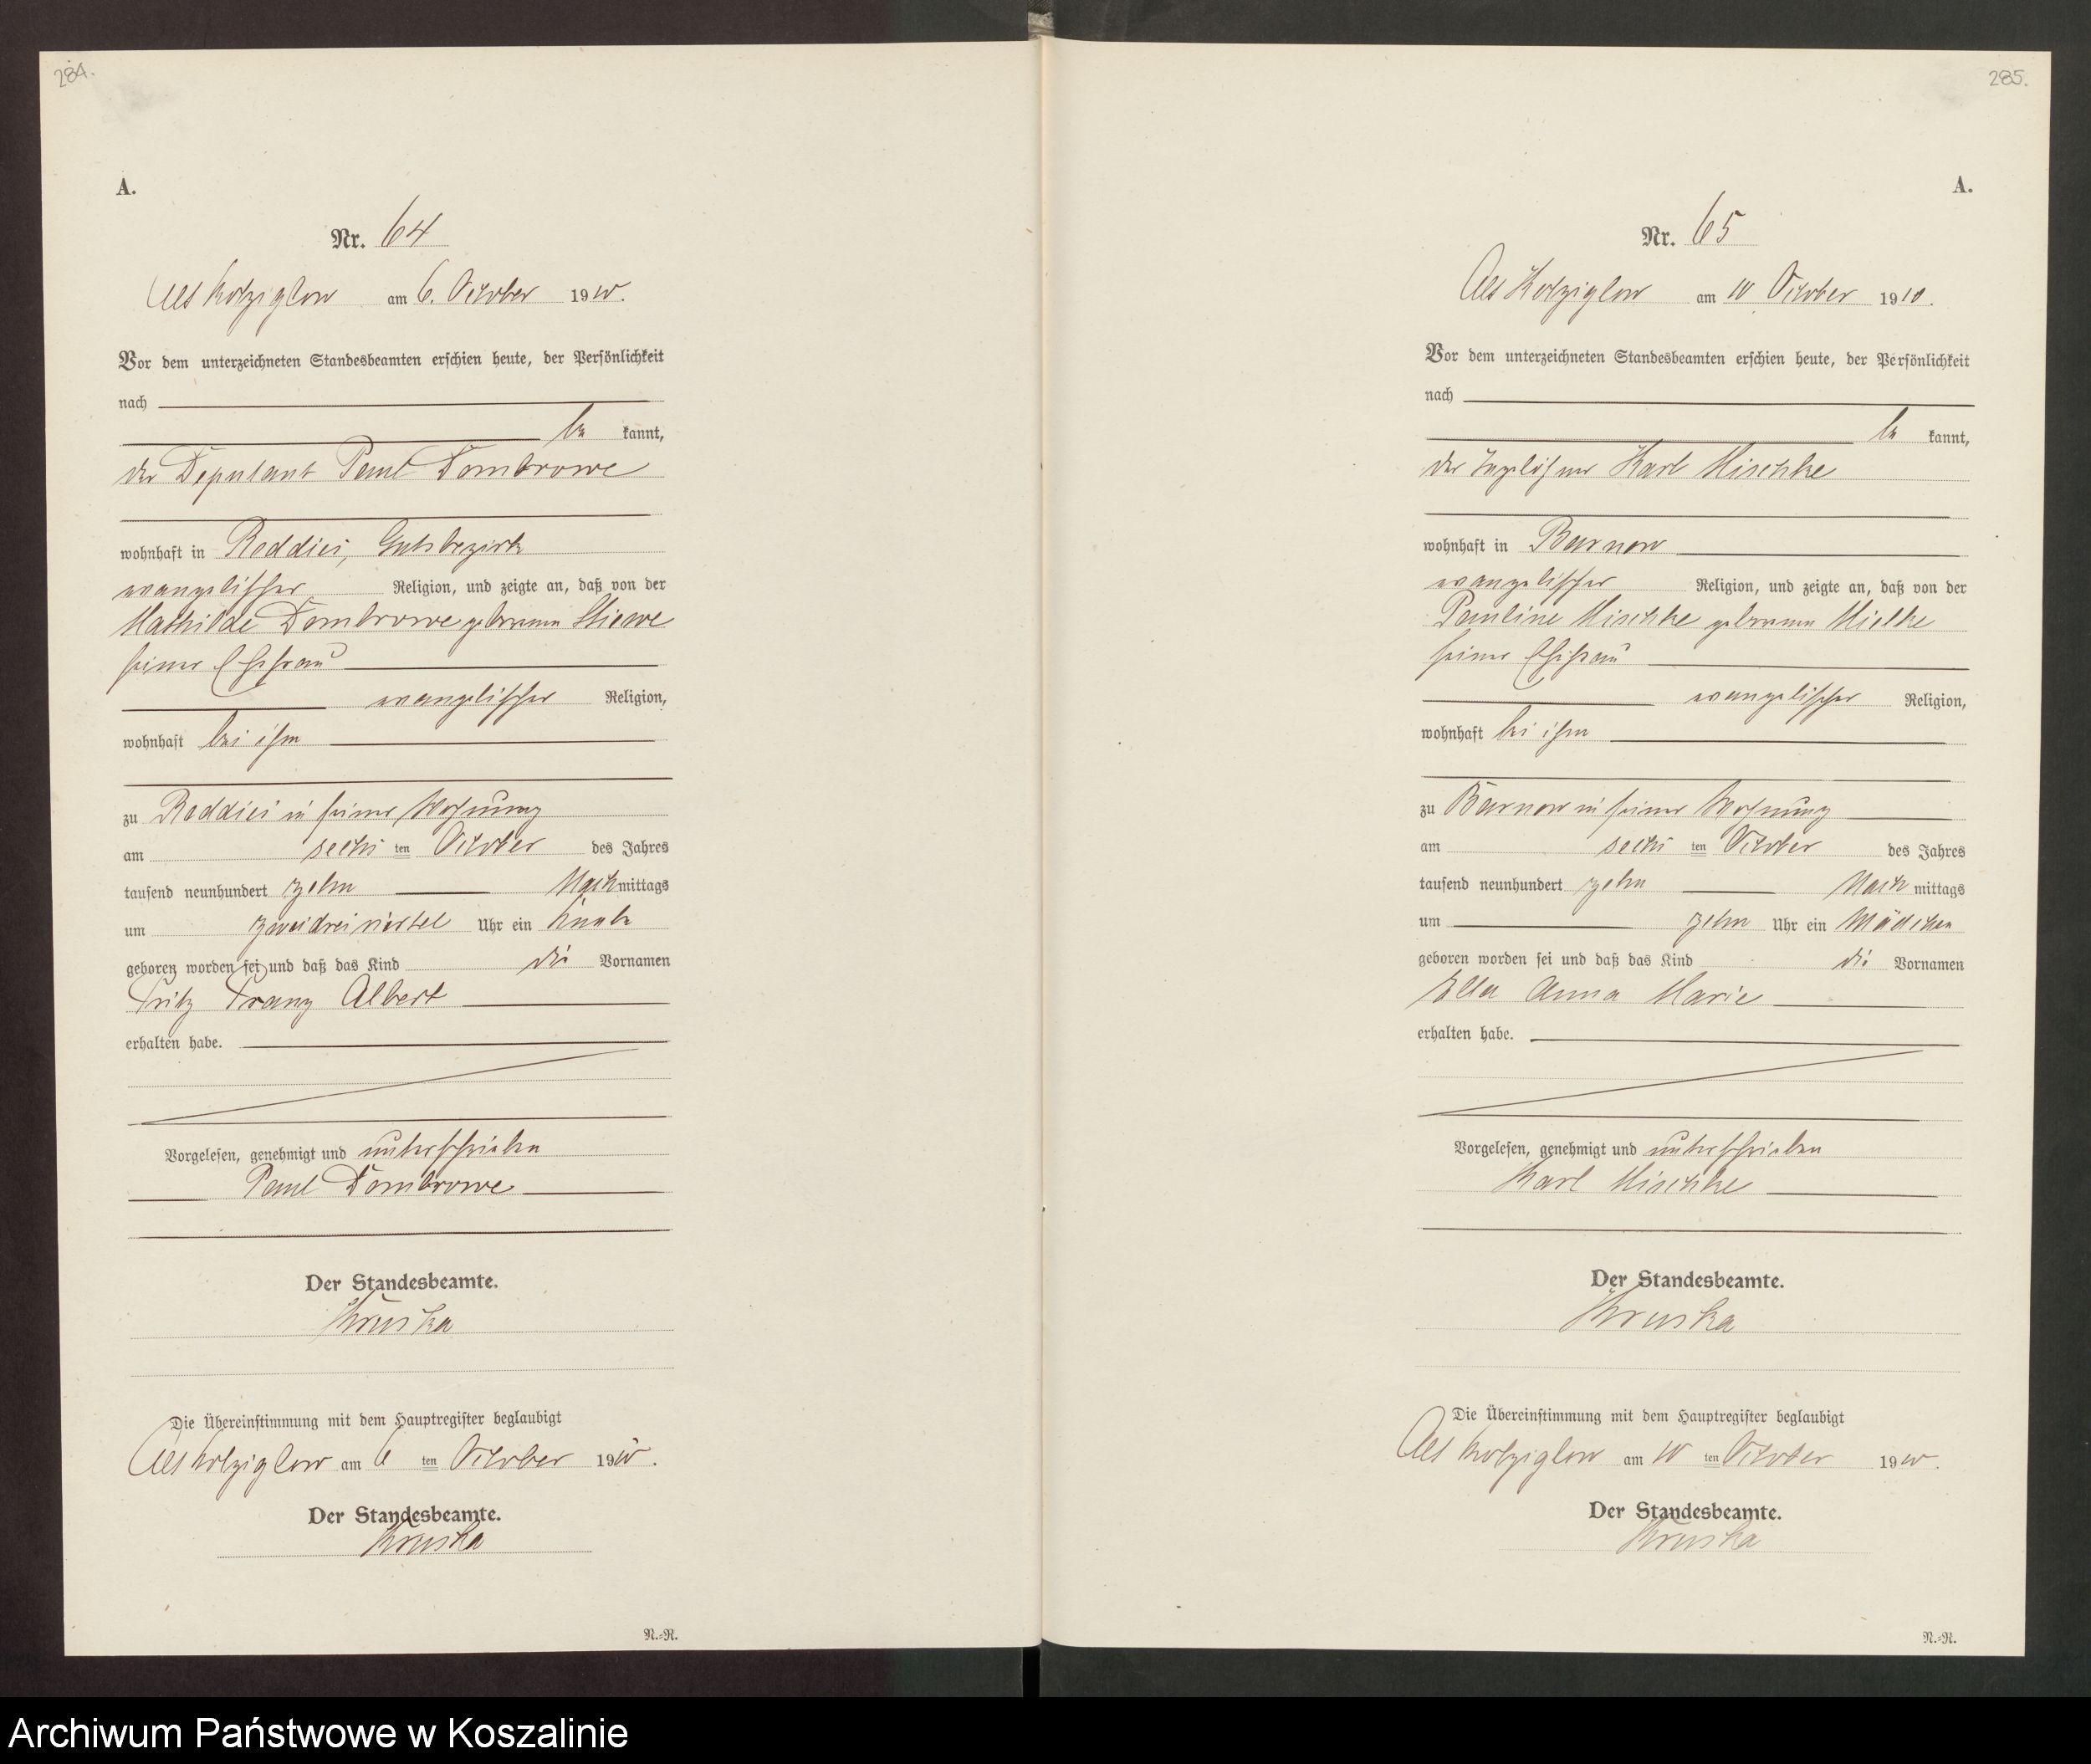 284.
A.
Nr. 64
Alt Kolziglow am 6. October 1910.
Vor dem unterzeichneten Standesbeamten erschien heute, der Persönlichkeit
nach
be kannt,
der Deputant Paul Dombrowe
wohnhaft in Reddies, Gutsbezirk
evangelischer Religion, und zeigte an, daß von der
Mathilde Dombrowe geborenen Stiewe
seiner Ehefrau
evangelischer Religion,
wohnhaft bei ihm
zu Reddies in seiner Wohnung
am sechs ten October des Jahres
tausend neunhundert zehn Nachmittags
um zweidreiviertel Uhr ein Knabe
geboren worden sei und daß das Kind die Vornamen
Fritz Franz Albert
erhalten habe.
Vorgelesen, genehmigt und unterschrieben
Paul Dombrowe
Der Standesbeamte.
Kruska
Die Übereinstimmung mit dem Hauptregister beglaubigt
Alt Kolziglow am 6 ten October 1910.
Der Standesbeamte.
Kruska
N.-R.
285.
A.
Nr. 65
Alt Kolziglow am 10 October 1910.
Vor dem unterzeichneten Standesbeamten erschien heute, der Persönlichkeit
nach
be kannt,
der Tagelöhner Karl Mischke
wohnhaft in Barnow
evangelischer Religion, und zeigte an, daß von der
Pauline Mischke geborenen Mielke
seiner Ehefrau
evangelischer Religion,
wohnhaft bei ihm
zu Barnow in seiner Wohnung
am sechs ten October des Jahres
tausend neunhundert zehn Nach mittags
um zehn Uhr ein Mädchen
geboren worden sei und daß das Kind die Vornamen
Ella Anna Marie
erhalten habe.
Vorgelesen, genehmigt und unterschrieben
Karl Mischke
Der Standesbeamte.
Kruska
Die Übereinstimmung mit dem Hauptregister beglaubigt
Alt Kolziglow am 10 ten October 1910.
Der Standesbeamte.
Kruska
N.-R.
Archiwum Państwowe w Koszalinie